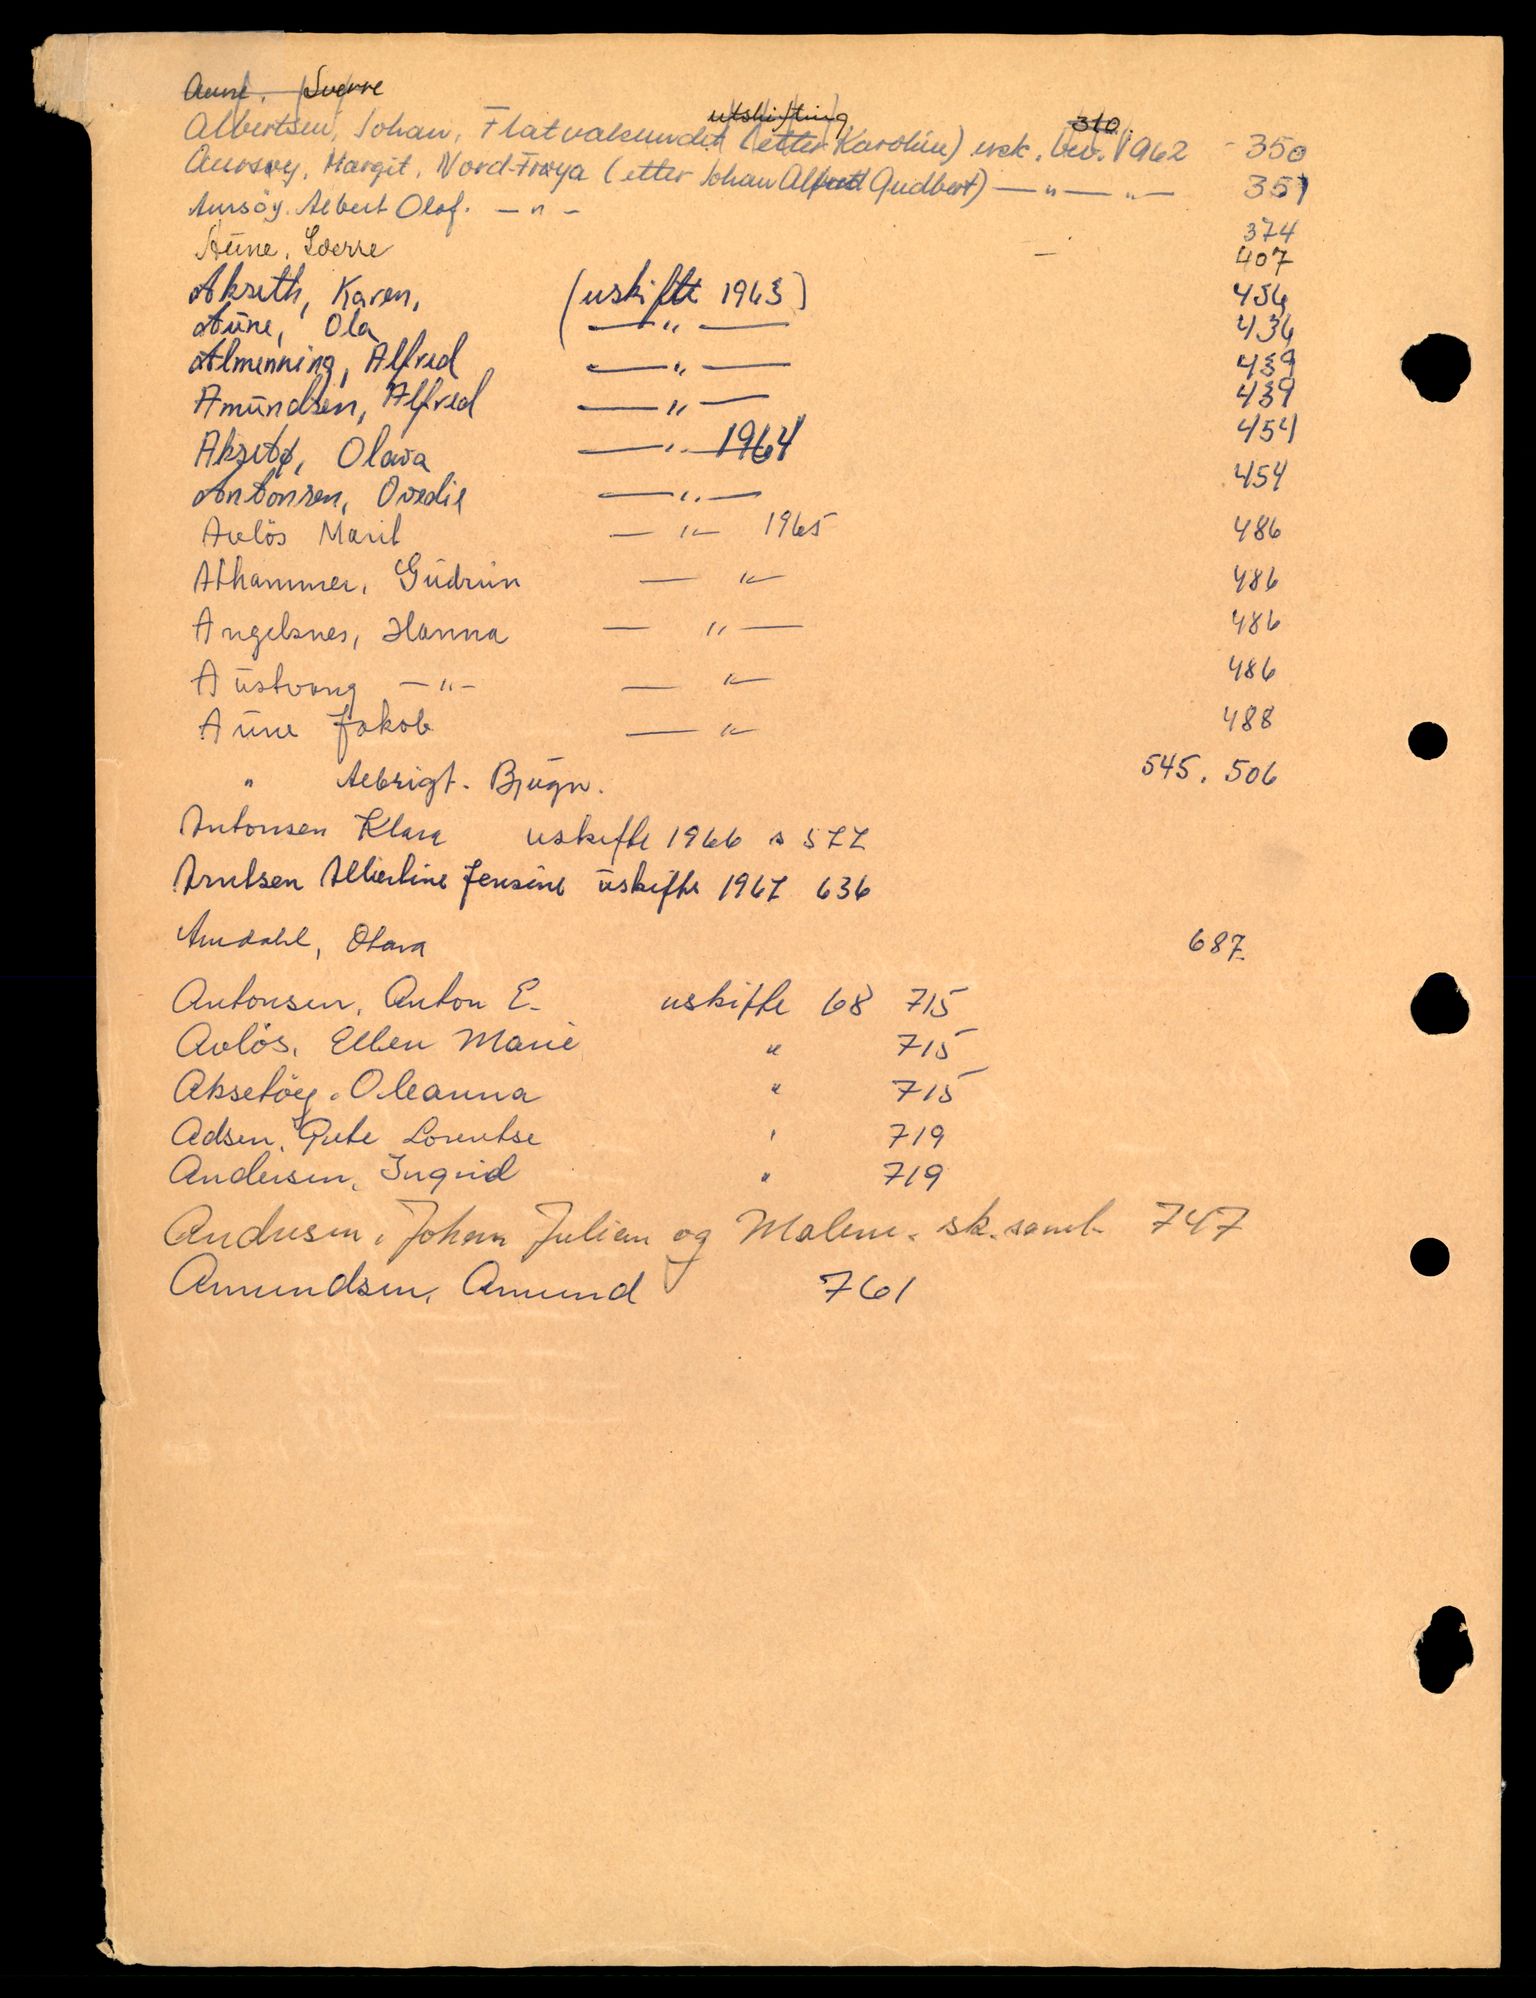 Aune, Sverre utskifting 310.
Albertsen, Johan, Flatvalsundet (etter Karoline) usk. bev. 1962 - 350
Aursøy, Margit, Nord-Frøya (etter Johan Gudbert) — " — " — 351
Aursöy. Albert Olaf. — " — 374
Aune, Sverre — 407
Akseth, Karen, (uskifte 1963) 436
Aune, Ola ( — " — 436
Almenning, Alfred — " — 439
Amundsen, Alfred — " — 439
Aksetø, Olava — " — 1964 454
Antonsen, Ovedie — " — 454
Avlös Marit — " — 1965 486
Althammer, Gudrun — " — 486
Angelsnes, Hanna — " — 486
Austvang — " — — " — 486
Aune Jakob — " — 488
" Albrigt. Bjugn. 545. 506
Antonsen Klara uskifte 1966 s 577
Arntsen Albertine Jensine uskifte 1967 636
Amdahl, Olava 687
Antonsen, Anton E. uskifte 68 715
Avlös, Ellen Marie " 715
Aksetöy. Oleanna " 715
Adsen, Grete Lorentse " 719
Andersen, Ingrid " 719
Andresen, Johan Julian og Malene. sk. saml. 747
Amundsen, Amund 761